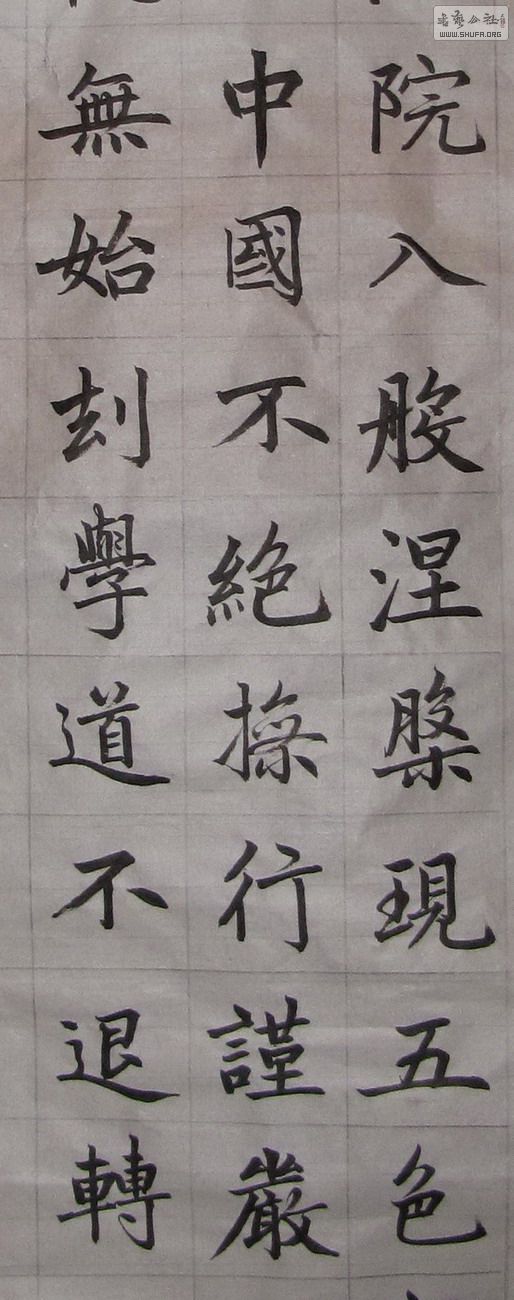 院入般涅槃現五色
中國不絕操行謹嚴
無始刦學道不退轉
WWW.SHUFA.ORG